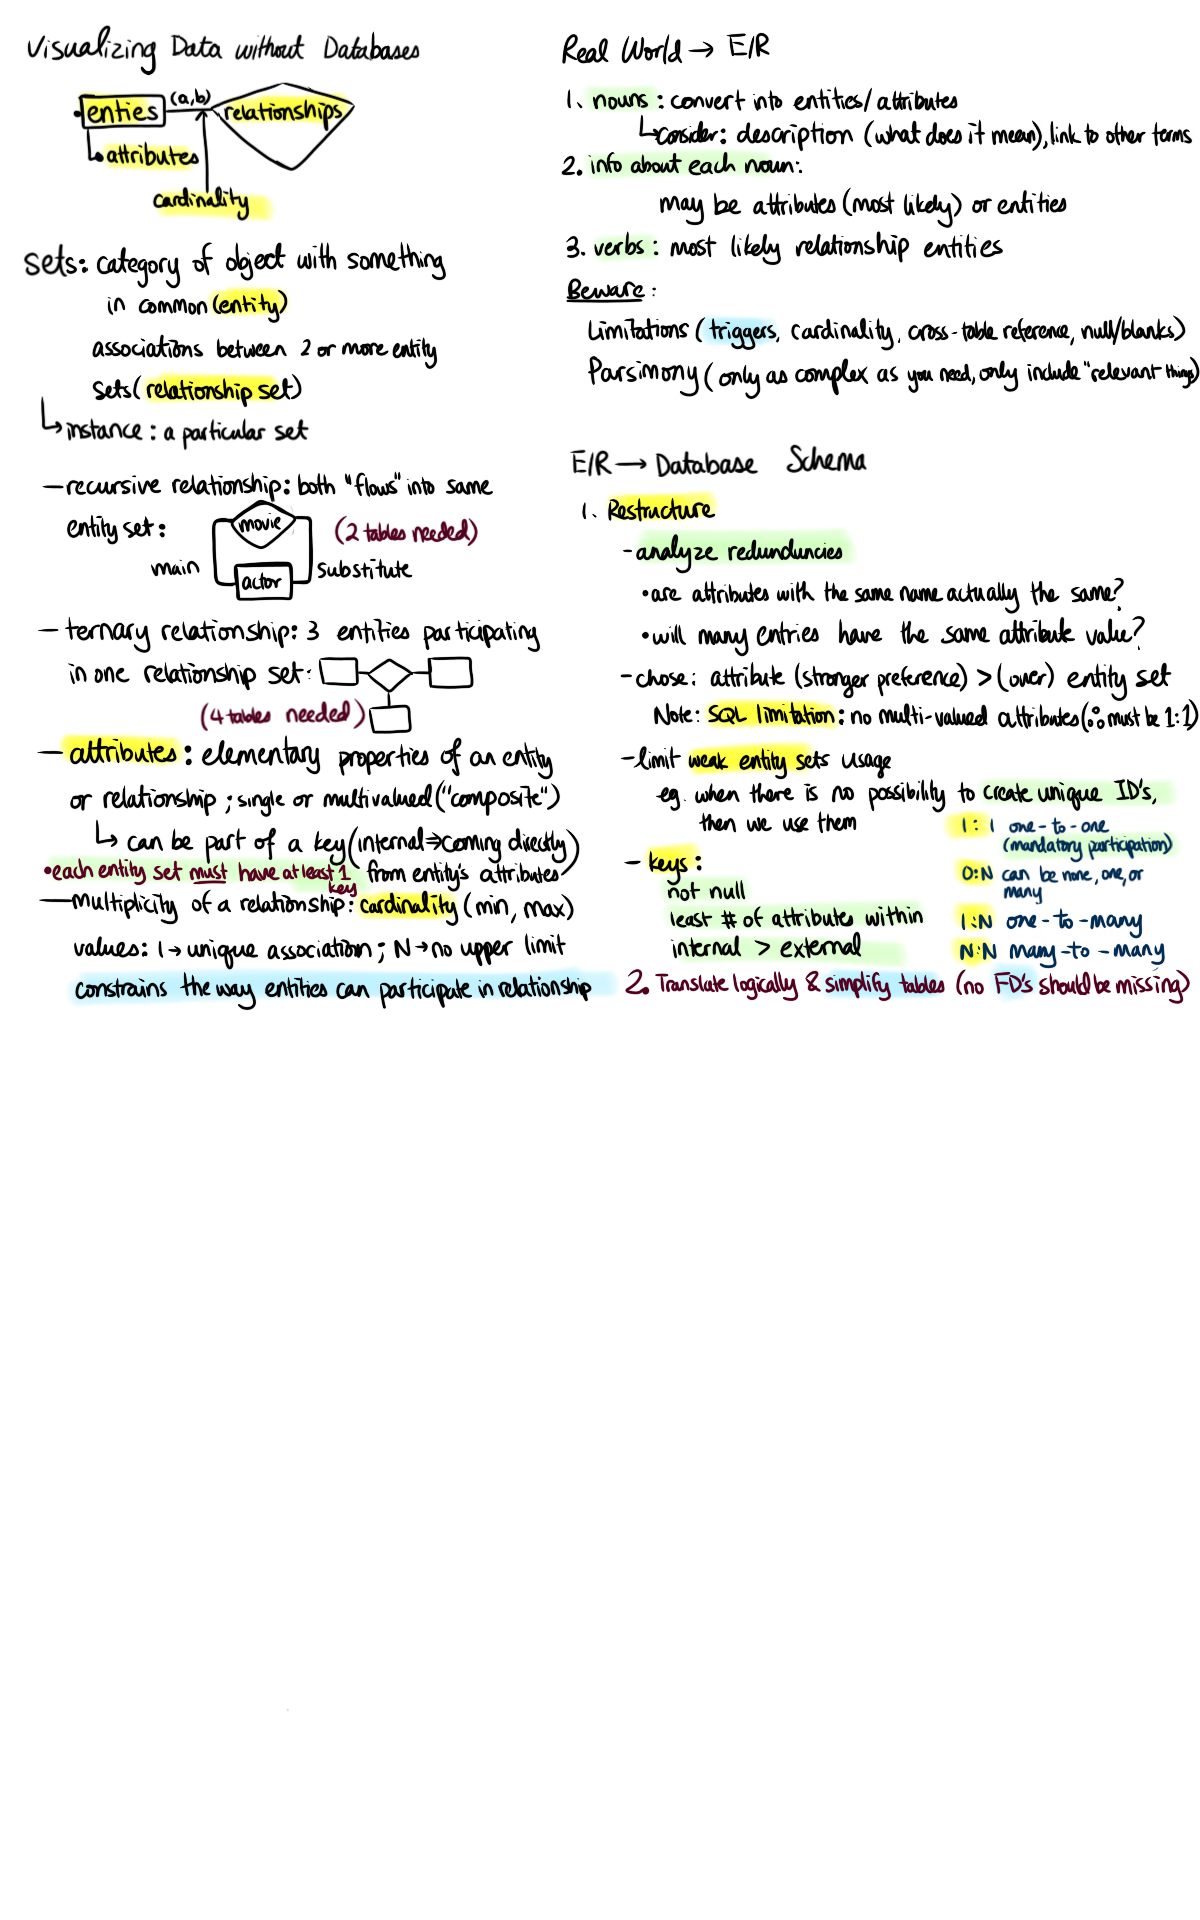 Visualizing Data without Databases
enties (a,b) relationships
attributes
cardinality
sets: category of object with something
in common (entity)
associations between 2 or more entity
sets (relationship set)
↳ instance: a particular set
– recursive relationship: both "flows" into same
entity set: movie (2 tables needed)
main actor substitute
– ternary relationship: 3 entities participating
in one relationship set:
(4 tables needed)
– attributes: elementary properties of an entity
or relationship; single or multivalued ("composite")
↳ can be part of a key (internal ⇒ coming directly
from entity's attributes)
• each entity set must have at least 1 key
– Multiplicity of a relationship: cardinality (min, max)
values: 1 → unique association; N → no upper limit
constrains the way entities can participate in relationship
Real World → E/R
1. nouns: convert into entities/attributes
↳ consider: description (what does it mean), link to other terms
2. info about each noun:
may be attributes (most likely) or entities
3. verbs: most likely relationship entities
Beware:
Limitations (triggers, cardinality, cross-table reference, null/blanks)
Parsimony (only as complex as you need, only include "relevant things)
E/R → Database Schema
1. Restructure
- analyze redunduncies
• are attributes with the same name actually the same?
• will many entries have the same attribute value?
- chose: attribute (stronger preference) > (over) entity set
Note: SQL limitation: no multi-valued attributes (∴ must be 1:1)
- limit weak entity sets usage
eg. when there is no possibility to create unique ID's,
then we use them
- keys:
not null
least # of attributes within
internal > external
1:1 one-to-one
(mandatory participation)
0:N can be none, one, or
many
1:N one-to-many
N:N many-to-many
2. Translate logically & simplify tables (no FD's should be missing)